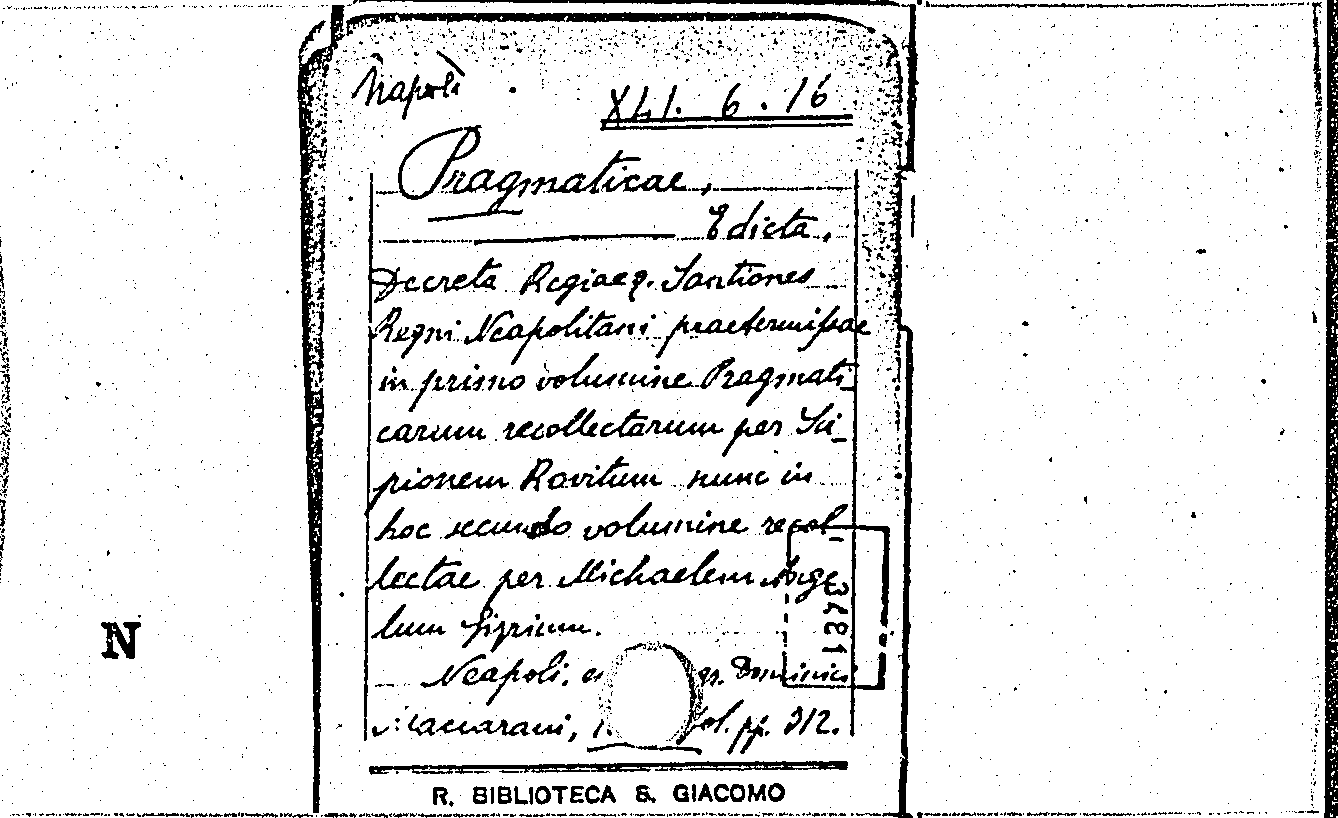 Napoli
XLI. 6. 16
Pragmaticae,
Edicta,
Decreta Regiaeq. Santiones
Regni Neapolitani praetermissae
in primo volumine Pragmati-
carum recollectarum per Sci-
pionem Rovitum nunc in
hoc secundo volumine recol-
lectae per Michaelem Ange
lum
Neapoli, Dominici
Maccarani, fol. pp. 312.
3481
N
R. BIBLIOTECA S. GIACOMO